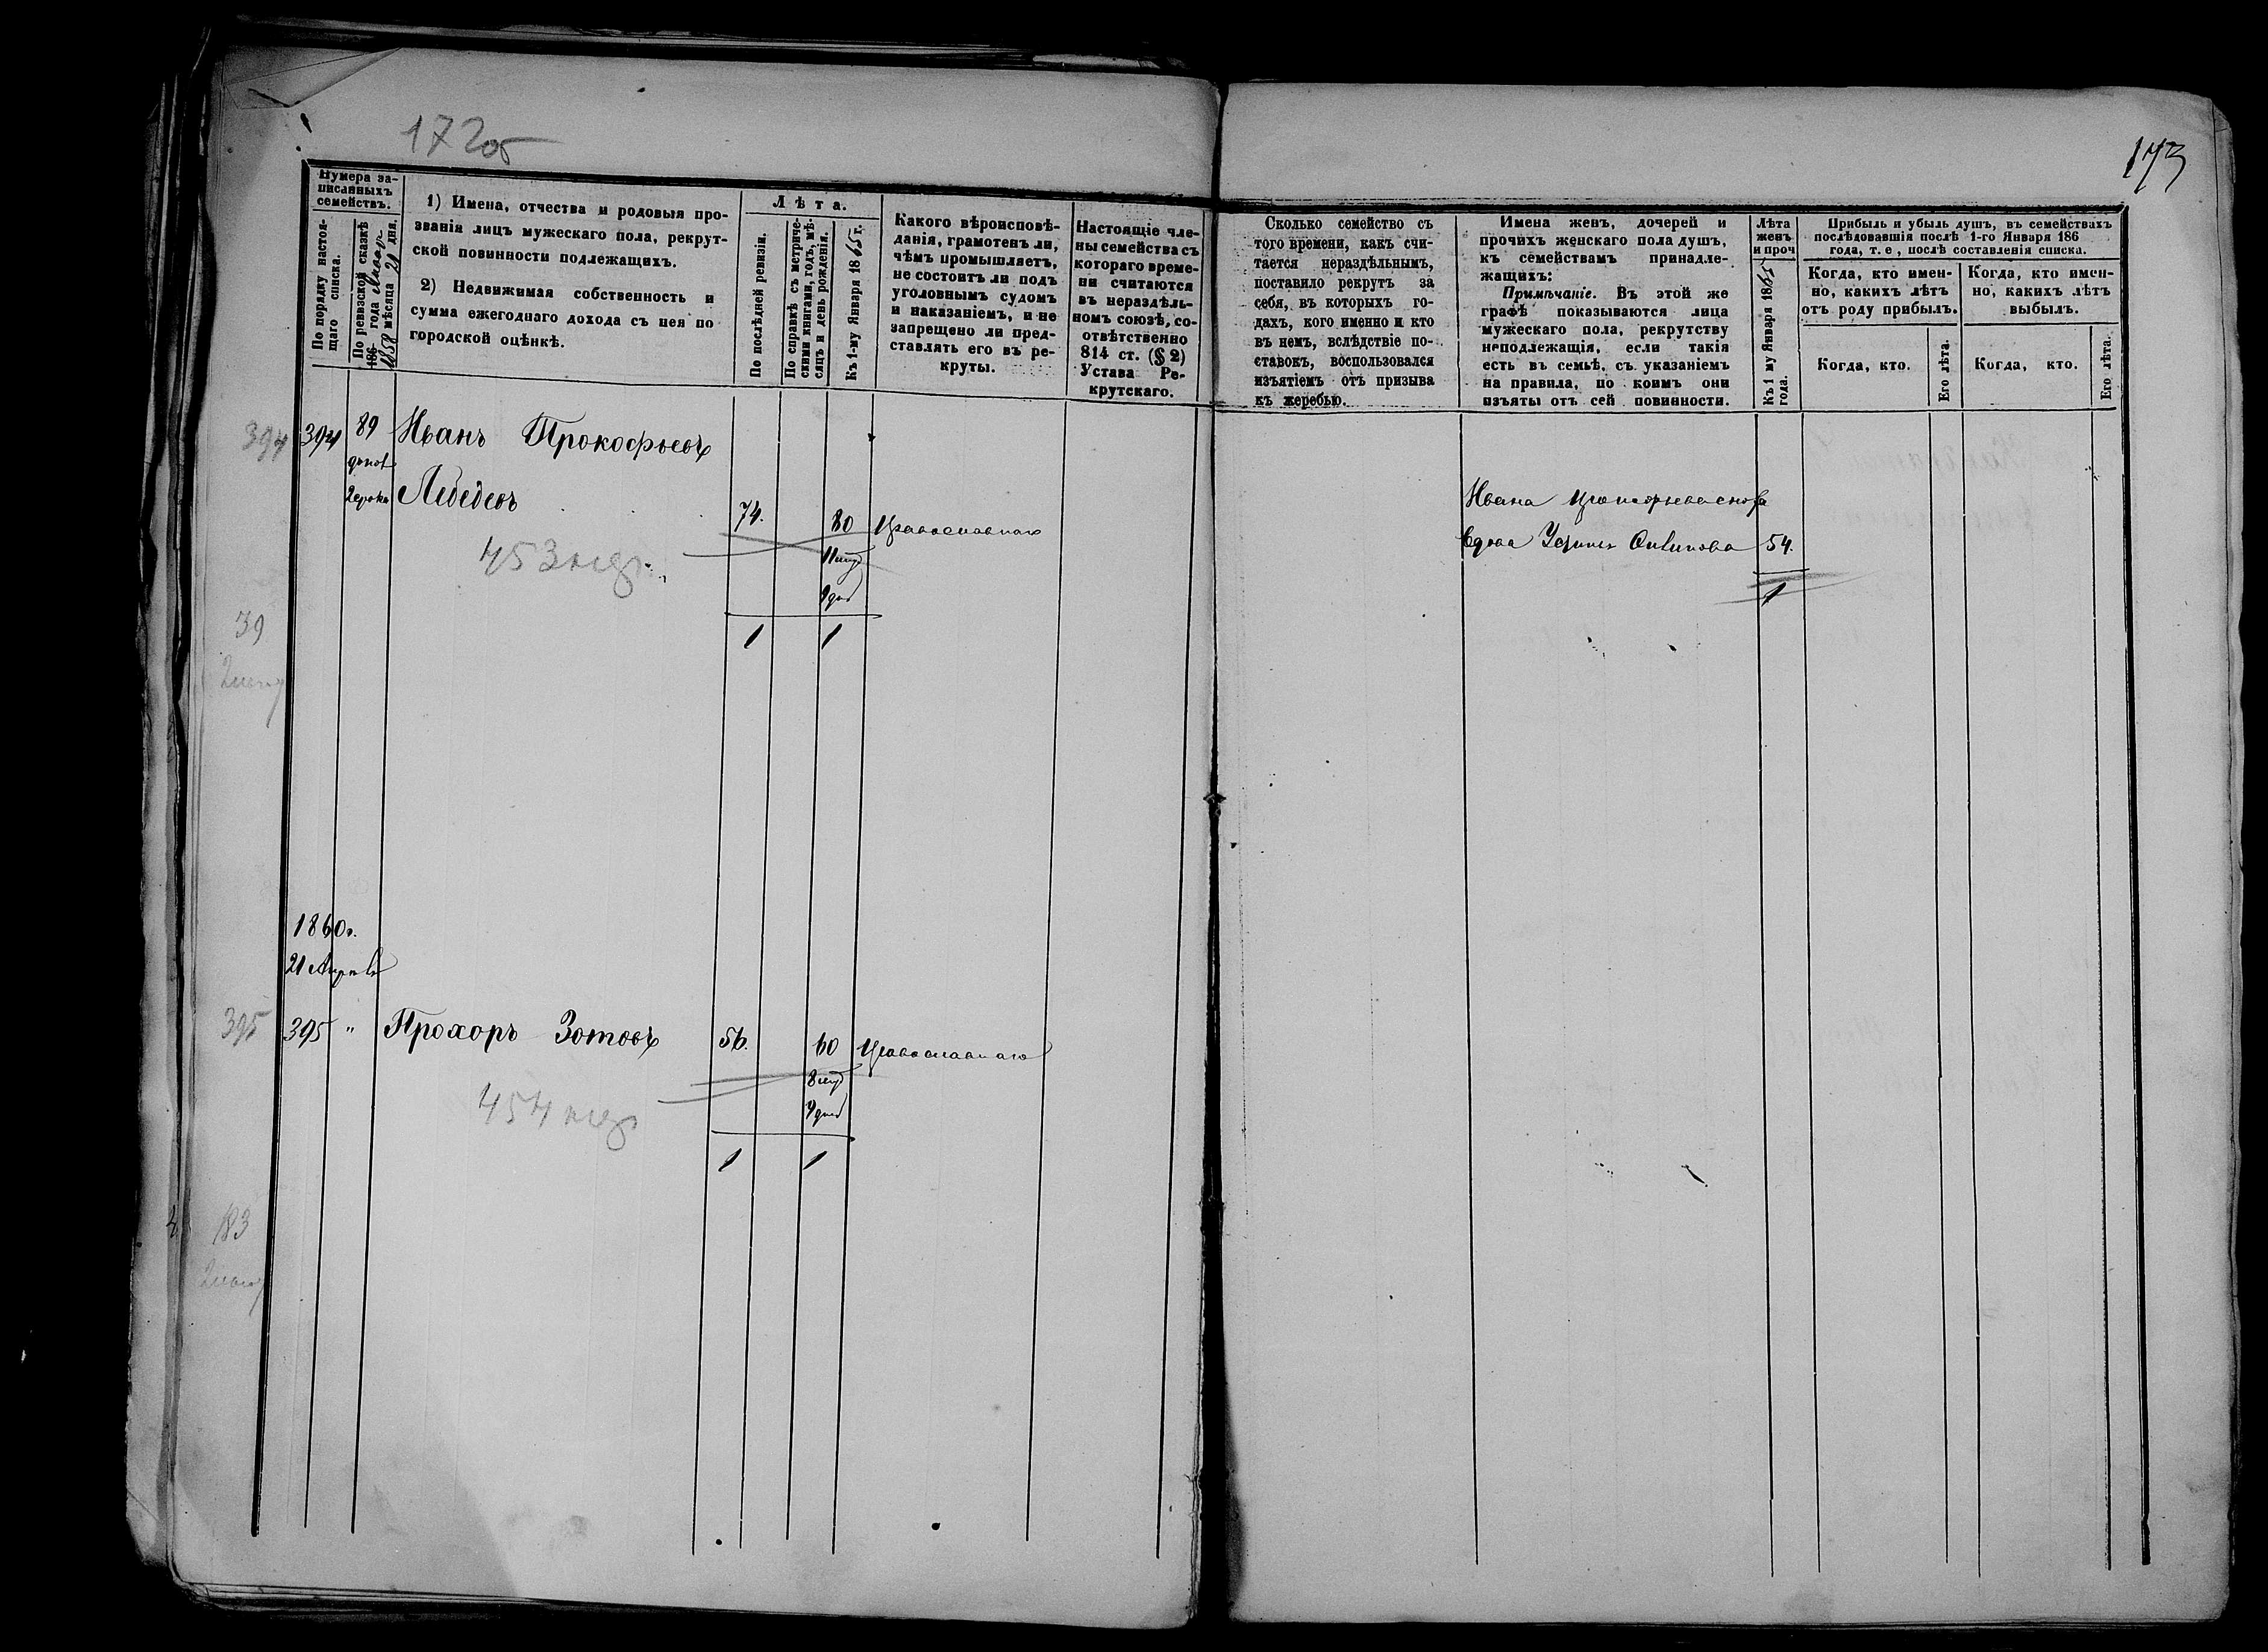 172об
173
Нумера за-
писанныхъ
семействъ.
По порядку настоя-
щаго списка.
По ревизской сказкѣ
186 года
1858 мѣсяца 21 дня.
1) Имена, отчества и родовыя про-
званія лицъ мужескаго пола, рекрут-
ской повинности подлежащихъ.
2) Недвижимая собственность и
сумма ежегоднаго дохода съ нея по
городской оцѣнкѣ.
Лѣта.
По послѣдней ревизіи.
По справкѣ съ метриче-
скими книгами, годъ, мѣ-
сяцъ и день рожденія.
Къ 1-му Января 1865 г.
Какого вѣроисповѣ-
данія, грамотенъ ли,
чѣмъ промышляетъ,
не состоитъ ли подъ
уголовнымъ судомъ
и наказаніемъ, и не
запрещено ли пред-
ставлять его въ ре-
круты.
Настоящіе чле-
ны семейства съ
котораго време-
ни считаются
въ нераздѣль-
номъ союзѣ, со-
отвѣтственно
814 ст. (§ 2)
Устава Ре-
крутскаго.
Сколько семейство съ
того времени, какъ счи-
тается нераздѣльнымъ,
поставило рекрутъ за
себя, въ которыхъ го-
дахъ, кого именно и кто
въ немъ, вслѣдствіе по-
ставокъ, воспользовался
изъятіемъ отъ призыва
къ жеребью.
Имена женъ, дочерей и
прочихъ женскаго пола душъ,
къ семействамъ принадле-
жащихъ:
Примѣчаніе. Въ этой же
графѣ показываются лица
мужескаго пола, рекрутству
неподлежащія, если такія
есть въ семьѣ, съ указаніемъ
на правила, по коимъ они
изъяты отъ сей повинности.
Лѣта
женъ
и проч
Къ 1 му Января 1865
года.
Прибыль и убыль душъ, въ семействахъ
послѣдовавшія послѣ 1-го Января 186
года, т. е, послѣ составленія списка.
Когда, кто имен-
но, какихъ лѣтъ
отъ роду прибылъ.
Когда, кто имен-
но, какихъ лѣтъ
выбылъ.
Когда, кто.
Его лѣта.
Когда, кто.
Его лѣта.
394 394 89 Иванъ Прокофьевъ
Лебедевъ
74. 80 Православнаго
11
453
1 1
Ивана Прокофьева сноха
вдова Устинья 54.
1
39
1860г.
21 Апрѣля
395 395 " Прохоръ Зотовъ 56. 60 Православнаго
8
454
9 дней
1 1
183